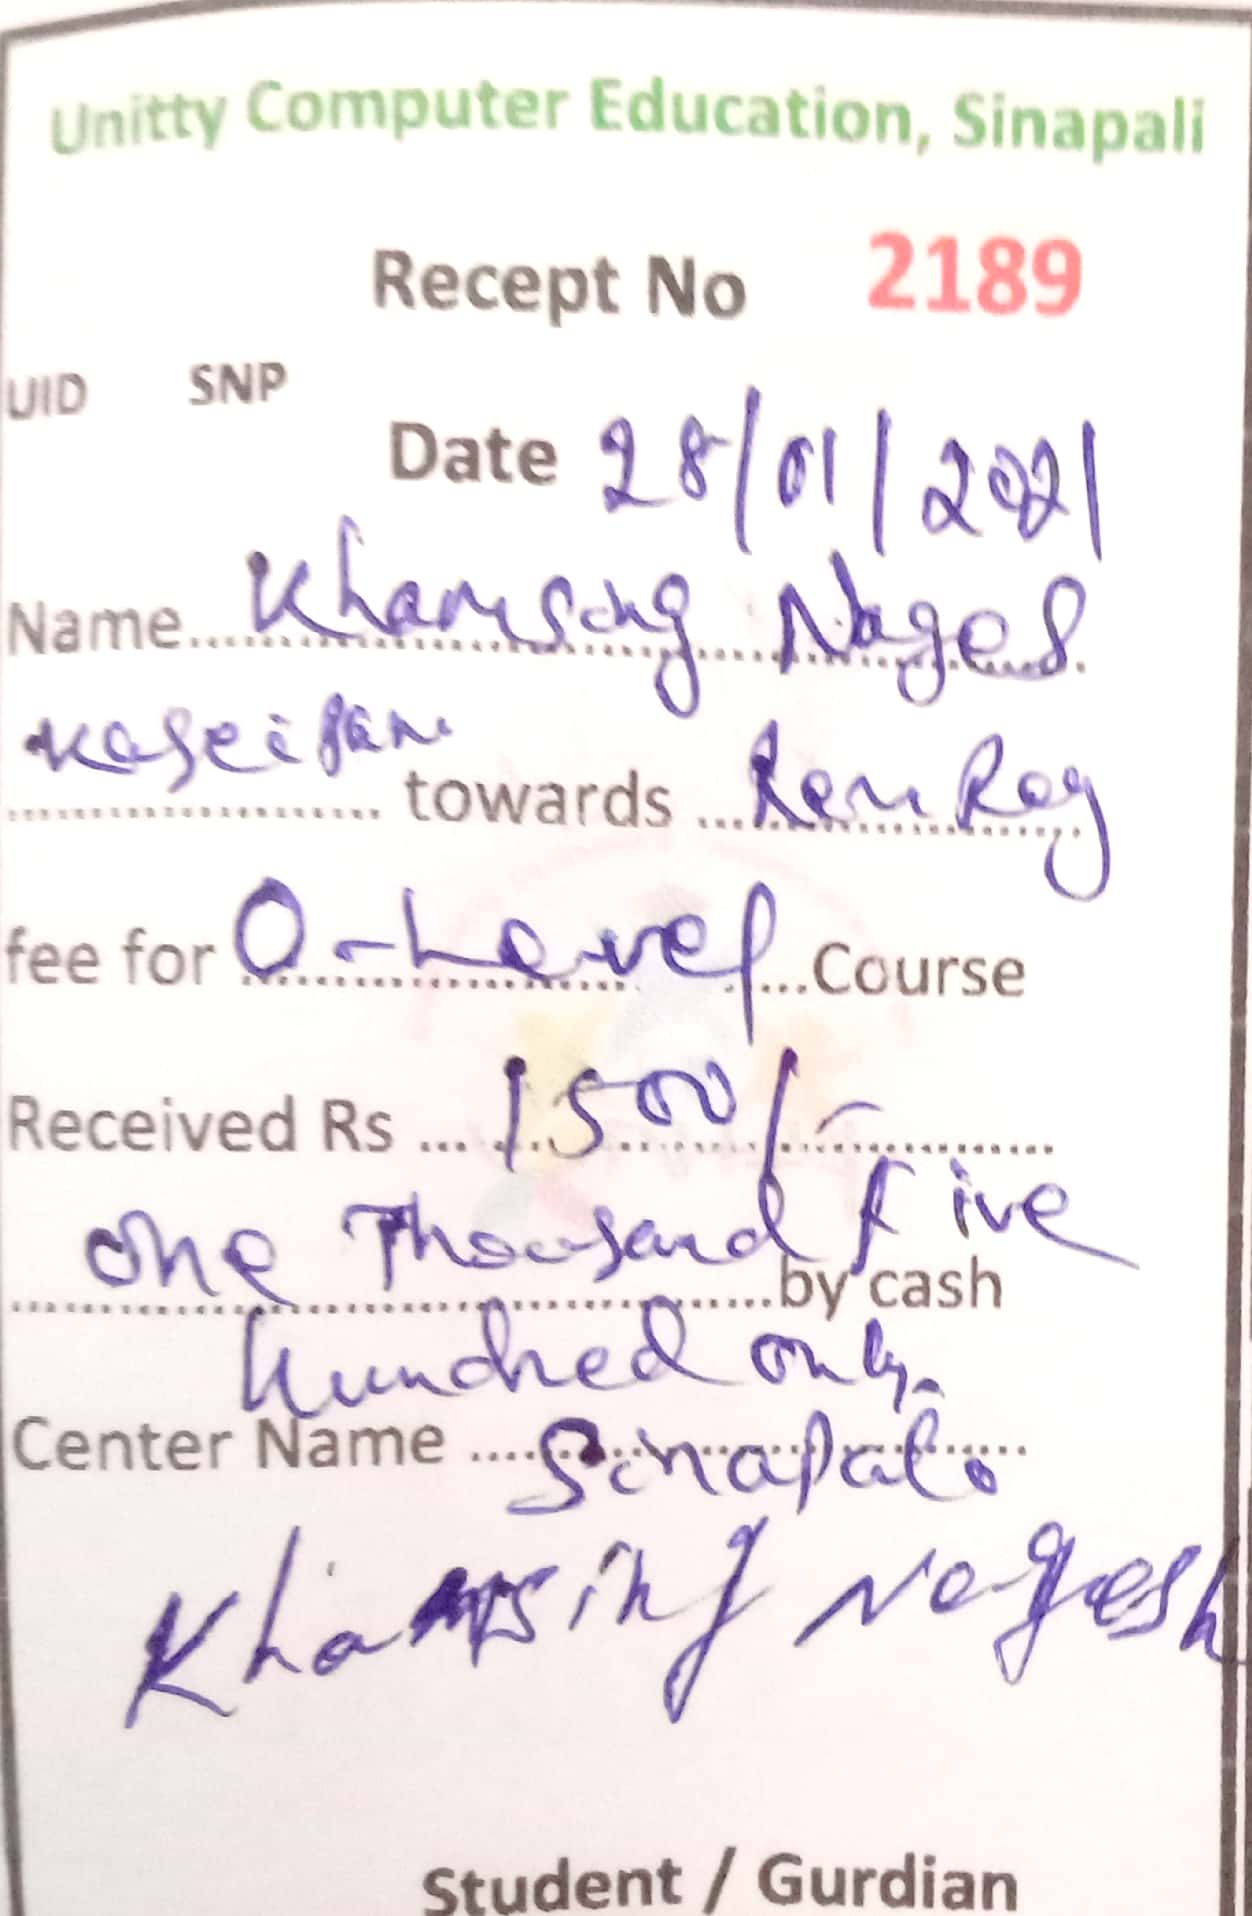 Unitty Computer Education, Sinapali
Recept No 2189
UID SNP
Date 28/01/2021
Name Khamsing Nages
towards
fee for O-Level Course
Received Rs 1500/-
One Thousand Five
by cash
hundred only.
Center Name Sinapali
Khamsing Nagesh
Student / Gurdian